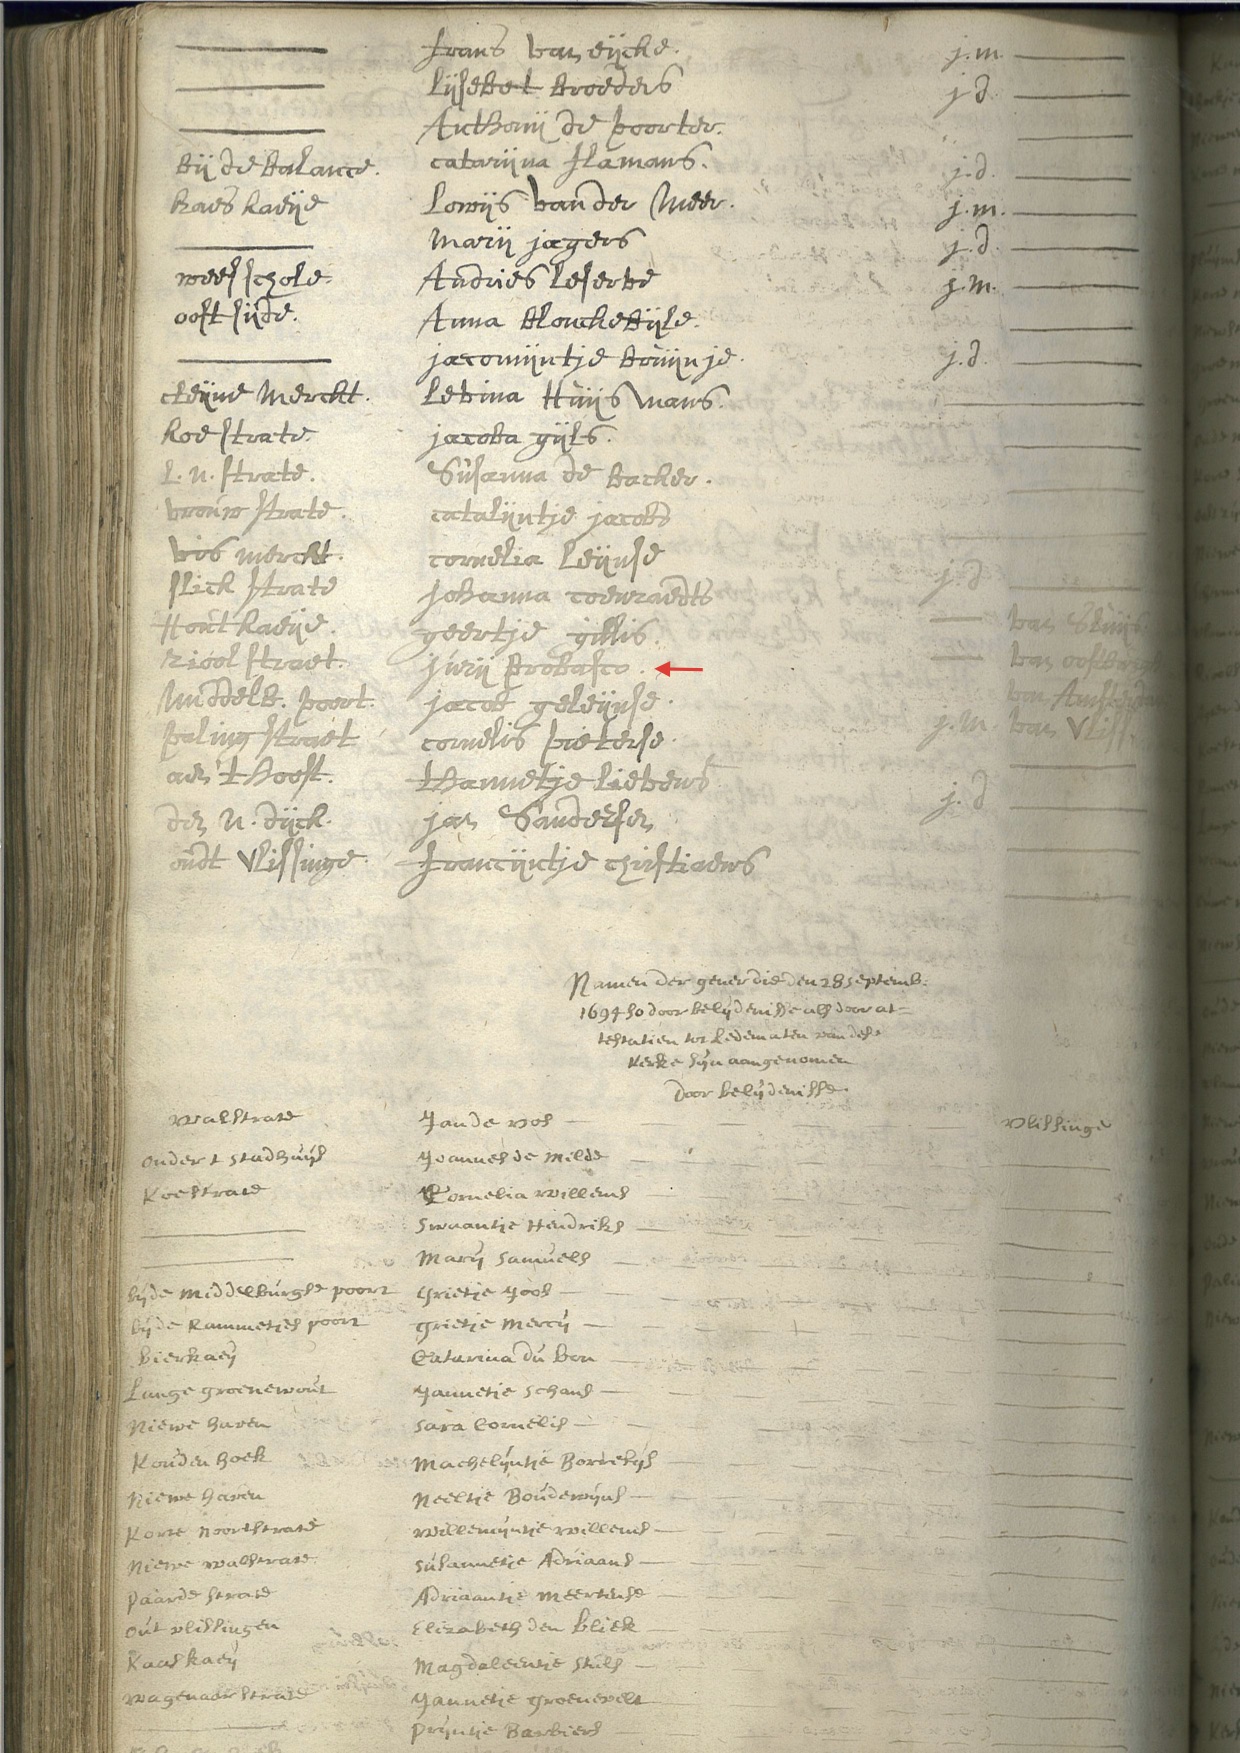 frans van eijcke. j.m.
Lijsebet broeders j.d.
Anthonij de poorter.
bij de balance. catarijna flamans. j.d.
kaeskaeije Lowijs vander Meer. j.m.
Marij jaegers j.d.
weesschole. Andries Leserve j.m.
oostsijde. Anna blonckebijle.
jacomijntje bruijnje. j.d.
cleijne Merckt. Levina Huijsmans.
koestrate. jacoba gijls.
L. n. strate. Susanna de backer.
vrouwstrate. catalijntje jacobs
vis merckt. cornelia Leijnse
slickstrate johanna j.d
Houtkaeije. geertje gillis. van Sluijs
Rioolstraet. jurij probasco. van
Middelb. poort. jacob geleijnse. van Amsterdam
palingstraet cornelis pieterse. j.m. van Vliss.
aen 't hooft. thannetje Lievens j.d
den n. dijck. jan Sandersen
oudt Vlissinge. francijntje christiaens
Namen der gener die den 28 septemb.
1694 so door belijdenisse als door at=
testatien tot Ledematen van dese
kerke sijn aangenomen
Door belijdenisse.
walstrate Jan de vos vlissinge
onder t stadhuijs Joannes de milde
Koestrate Cornelia willems
Swaantje Hendriks
Marij Samuels
bij de middelburgse poort Grietje Joos
bij de Rammetjes poort grietje mercij
bierkaeij Catarina du bon
Lange groenewout Jannetje schans
Niewe haven Sara Cornelis
Kouden hoek Machelijntje
Niewe haven Neeltje Boudewijns
Korte noortstrate willemijntje willems
Niewe walstrate Susannetje Adriaans
paarde strate Adriaantje meertense
out vlissingen Elizabeth den bliek
Kaaskaeij Magdaleentje stuls
wagenaarstrate Jannetje groenevelt
prijntje Barbiers